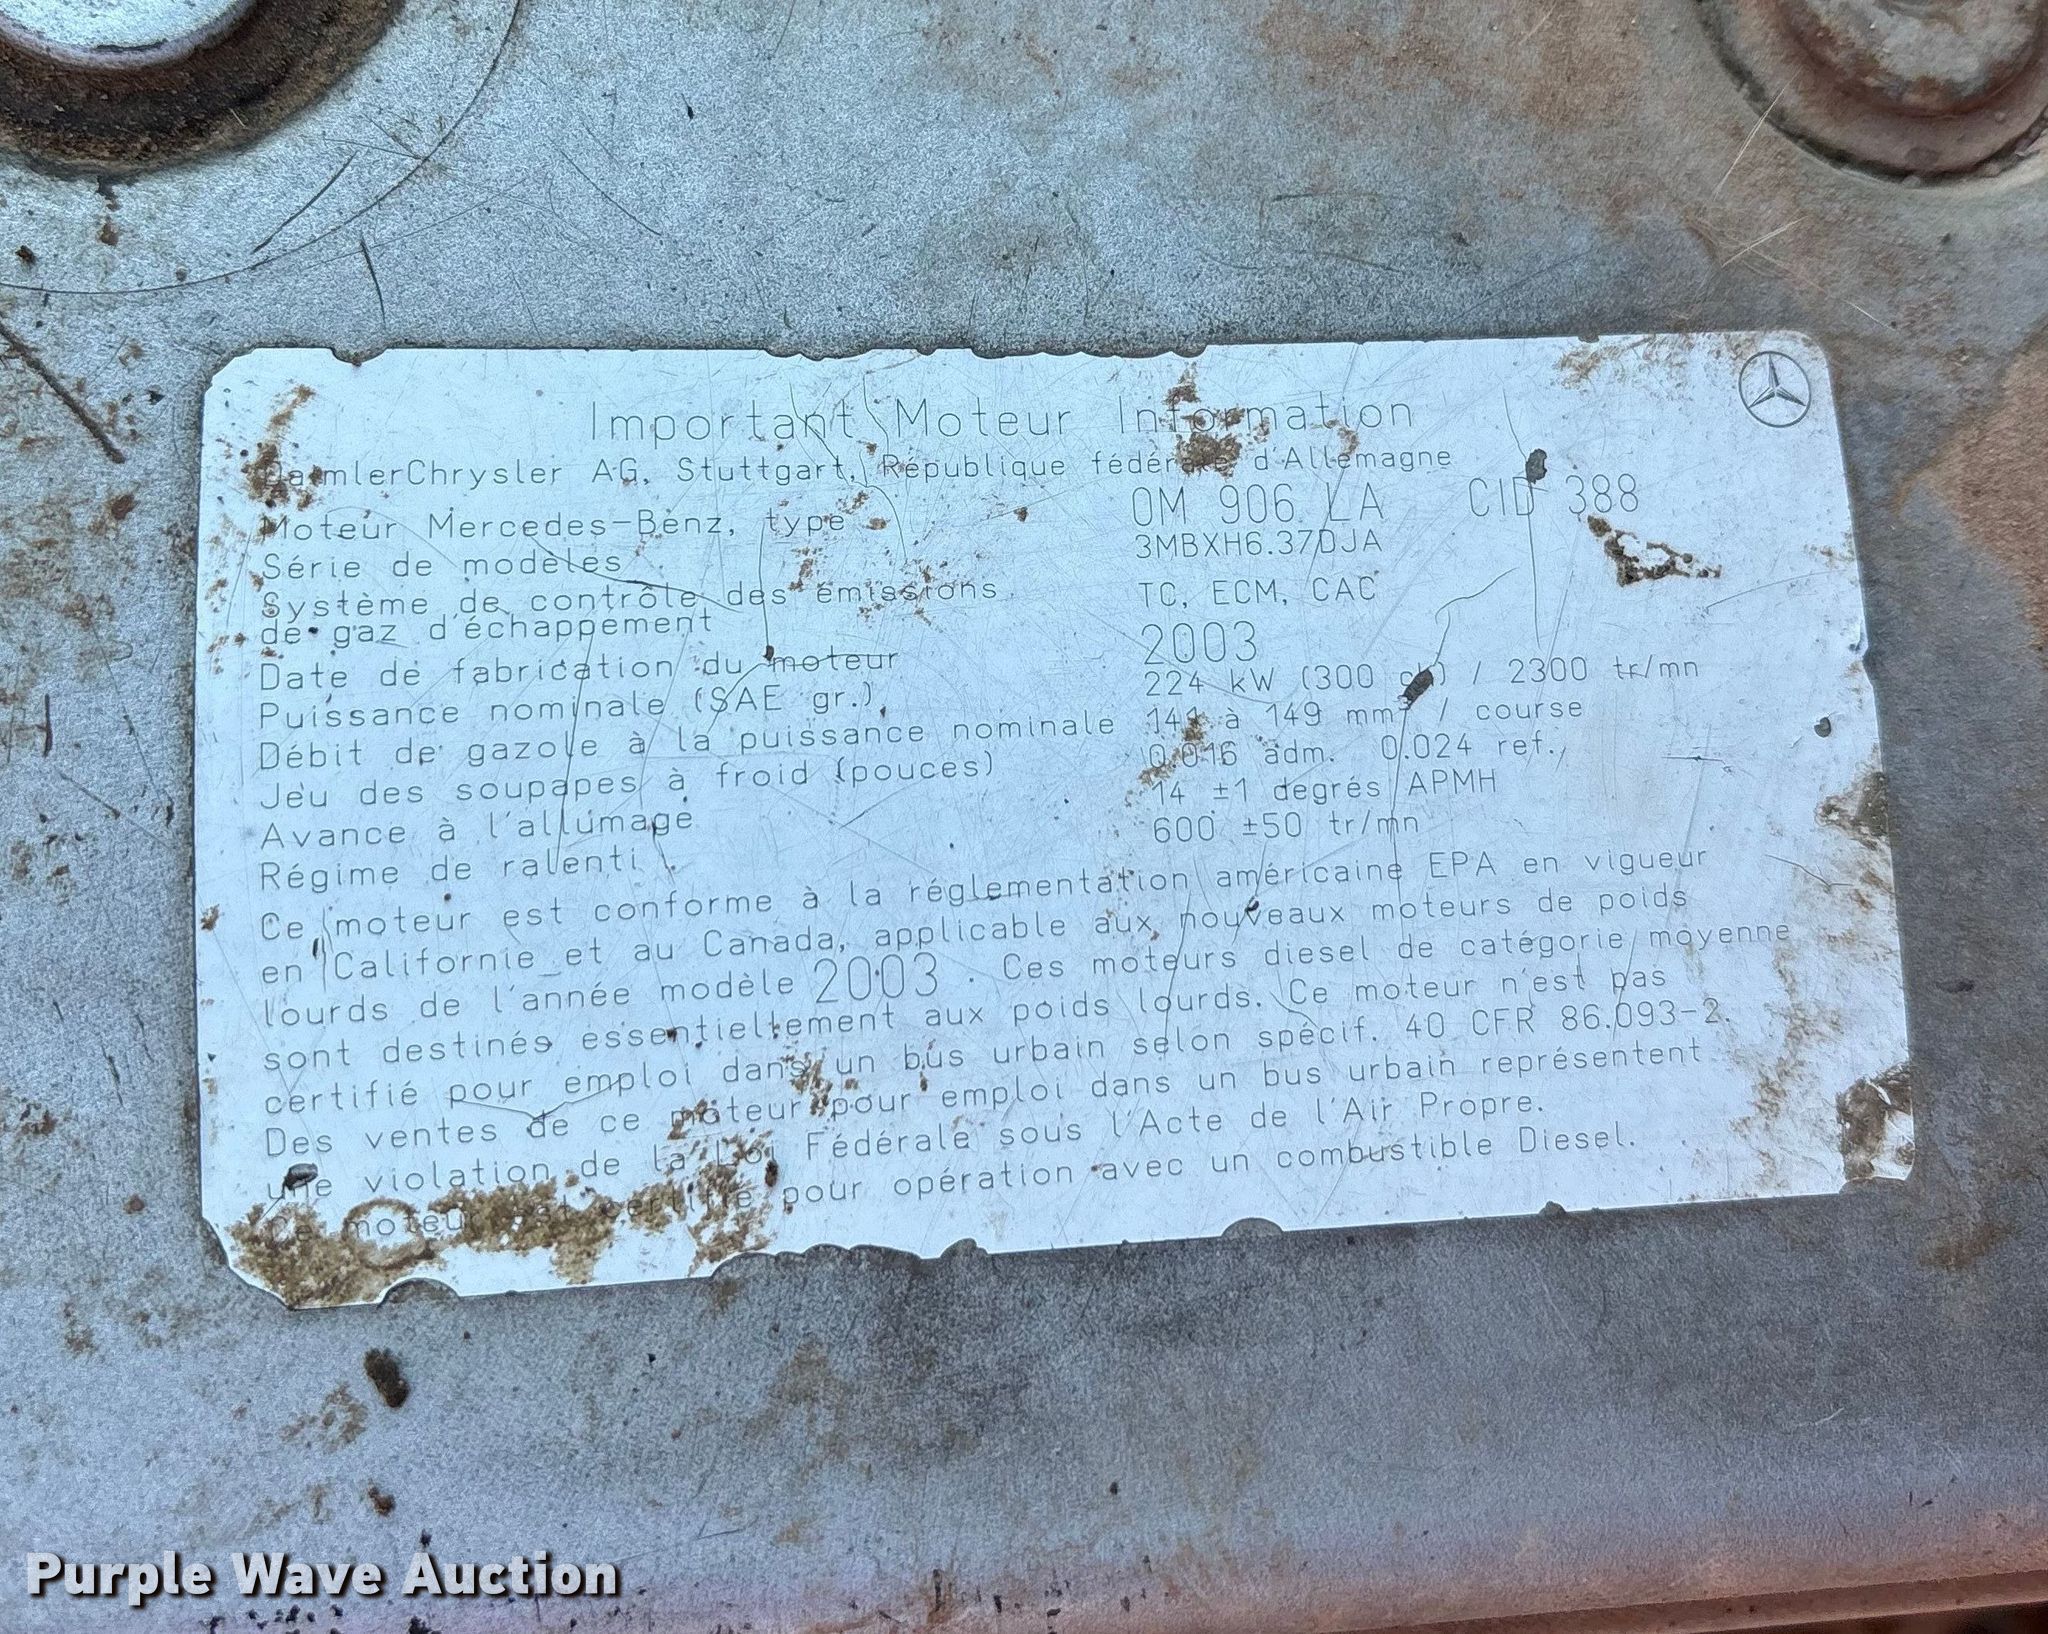 Important Moteur Information
DaimlerChrysler AG, Stuttgart, République fédérale d'Allemagne
Moteur Mercedes-Benz, type OM 906 LA CID 388
Série de modèles 3MBXH6.37DJA
Système de contrôle des émissions
de gaz d'échappement TC, ECM, CAC
Date de fabrication du moteur 2003
Puissance nominale (SAE gr.) 224 kW (300 ch) / 2300 tr/mn
Débit de gazole à la puissance nominale 141 à 149 mm³ / course
Jeu des soupapes à froid (pouces) 0.016 adm. 0.024 ref.
Avance à l'allumage 14 ±1 degrés APMH
Régime de ralenti 600 ±50 tr/mn
Ce moteur est conforme à la réglementation américaine EPA en vigueur
en Californie et au Canada, applicable aux nouveaux moteurs de poids
lourds de l'année modèle 2003 . Ces moteurs diesel de catégorie moyenne
sont destinés essentiellement aux poids lourds. Ce moteur n'est pas
certifié pour emploi dans un bus urbain selon spécif. 40 CFR 86.093-2.
Des ventes de ce moteur pour emploi dans un bus urbain représentent
une violation de la Loi Fédérale sous l'Acte de l'Air Propre.
Ce moteur est certifié pour opération avec un combustible Diesel.
Purple Wave Auction